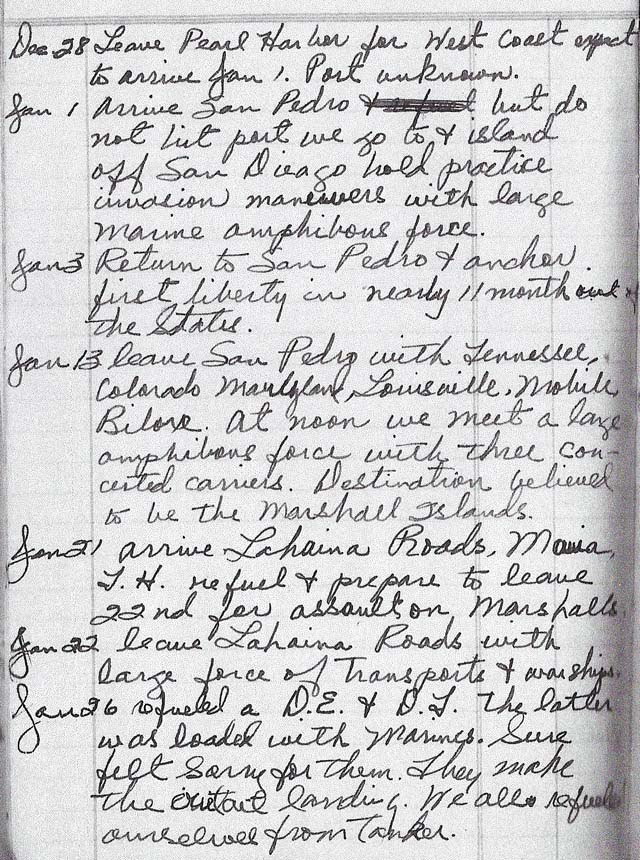 Dec 28 Leave Pearl Harbor for West Coast expect
to arrive Jan 1. Port unknown.
Jan 1 Arrive San Pedro & but do
not hit port we go to & island
off San Dieago hold practice
invasion maneuvers with large
Marine amphibous force.
Jan 3 Return to San Pedro & anchor.
first liberty in nearly 11 month out of
the States.
Jan 13 leave San Pedro with Tennessee,
Colorado Maryland, Louisville, Mobile,
Biloxe. At noon we meet a large
amphibous force with three con-
certed carriers. Destination believed
to be the Marshall Islands.
Jan 21 arrive Lahaina Roads,
T.H. refuel & prepare to leave
22nd for assault on Marshalls.
Jan 22 leave Lahaina Roads with
large force of Transports & warships.
Jan 26 refueled a D.E. & D.T. The latter
was loaded with Marines. Sure
felt Sorry for them. They make
the landing. We also refueled
ourselves from Tanker.